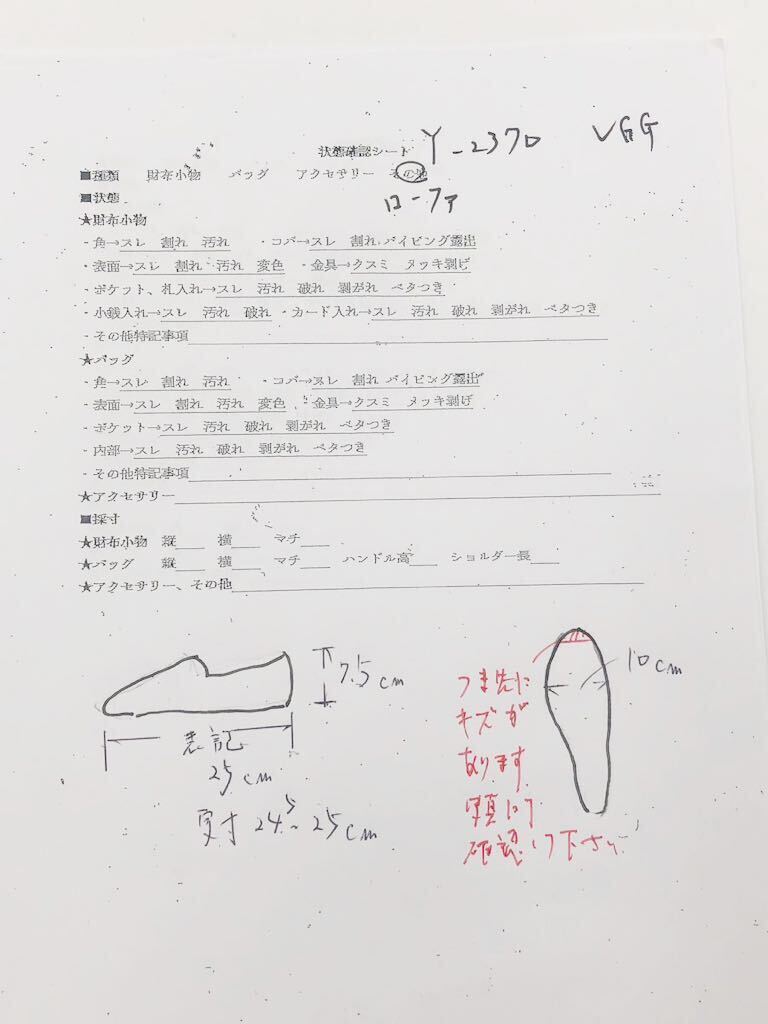 状態確認シート Y-2370 VGG
■種類 財布小物 バッグ アクセサリー その他
■状態 ローファ
★財布小物
・角→スレ 割れ 汚れ ・コバ→スレ 割れ パイピング露出
・表面→スレ 割れ 汚れ 変色 ・金具→クスミ メッキ剥げ
・ポケット、札入れ→スレ 汚れ 破れ 剥がれ ベタつき
・小銭入れ→スレ 汚れ 破れ ・カード入れ→スレ 汚れ 破れ 剥がれ ベタつき
・その他特記事項
★バッグ
・角→スレ 割れ 汚れ ・コバ→スレ 割れ パイピング露出
・表面→スレ 割れ 汚れ 変色 ・金具→クスミ メッキ剥げ
・ポケット→スレ 汚れ 破れ 剥がれ ベタつき
・内部→スレ 汚れ 破れ 剥がれ ベタつき
・その他特記事項
★アクセサリー
■採寸
★財布小物 縦 横 マチ
★バッグ 縦 横 マチ ハンドル高 ショルダー長
★アクセサリー、その他
7.5cm
表記
25cm
実寸 24.5~25cm
10cm
つま先に
キズが
あります
写真にて
確認して下さい